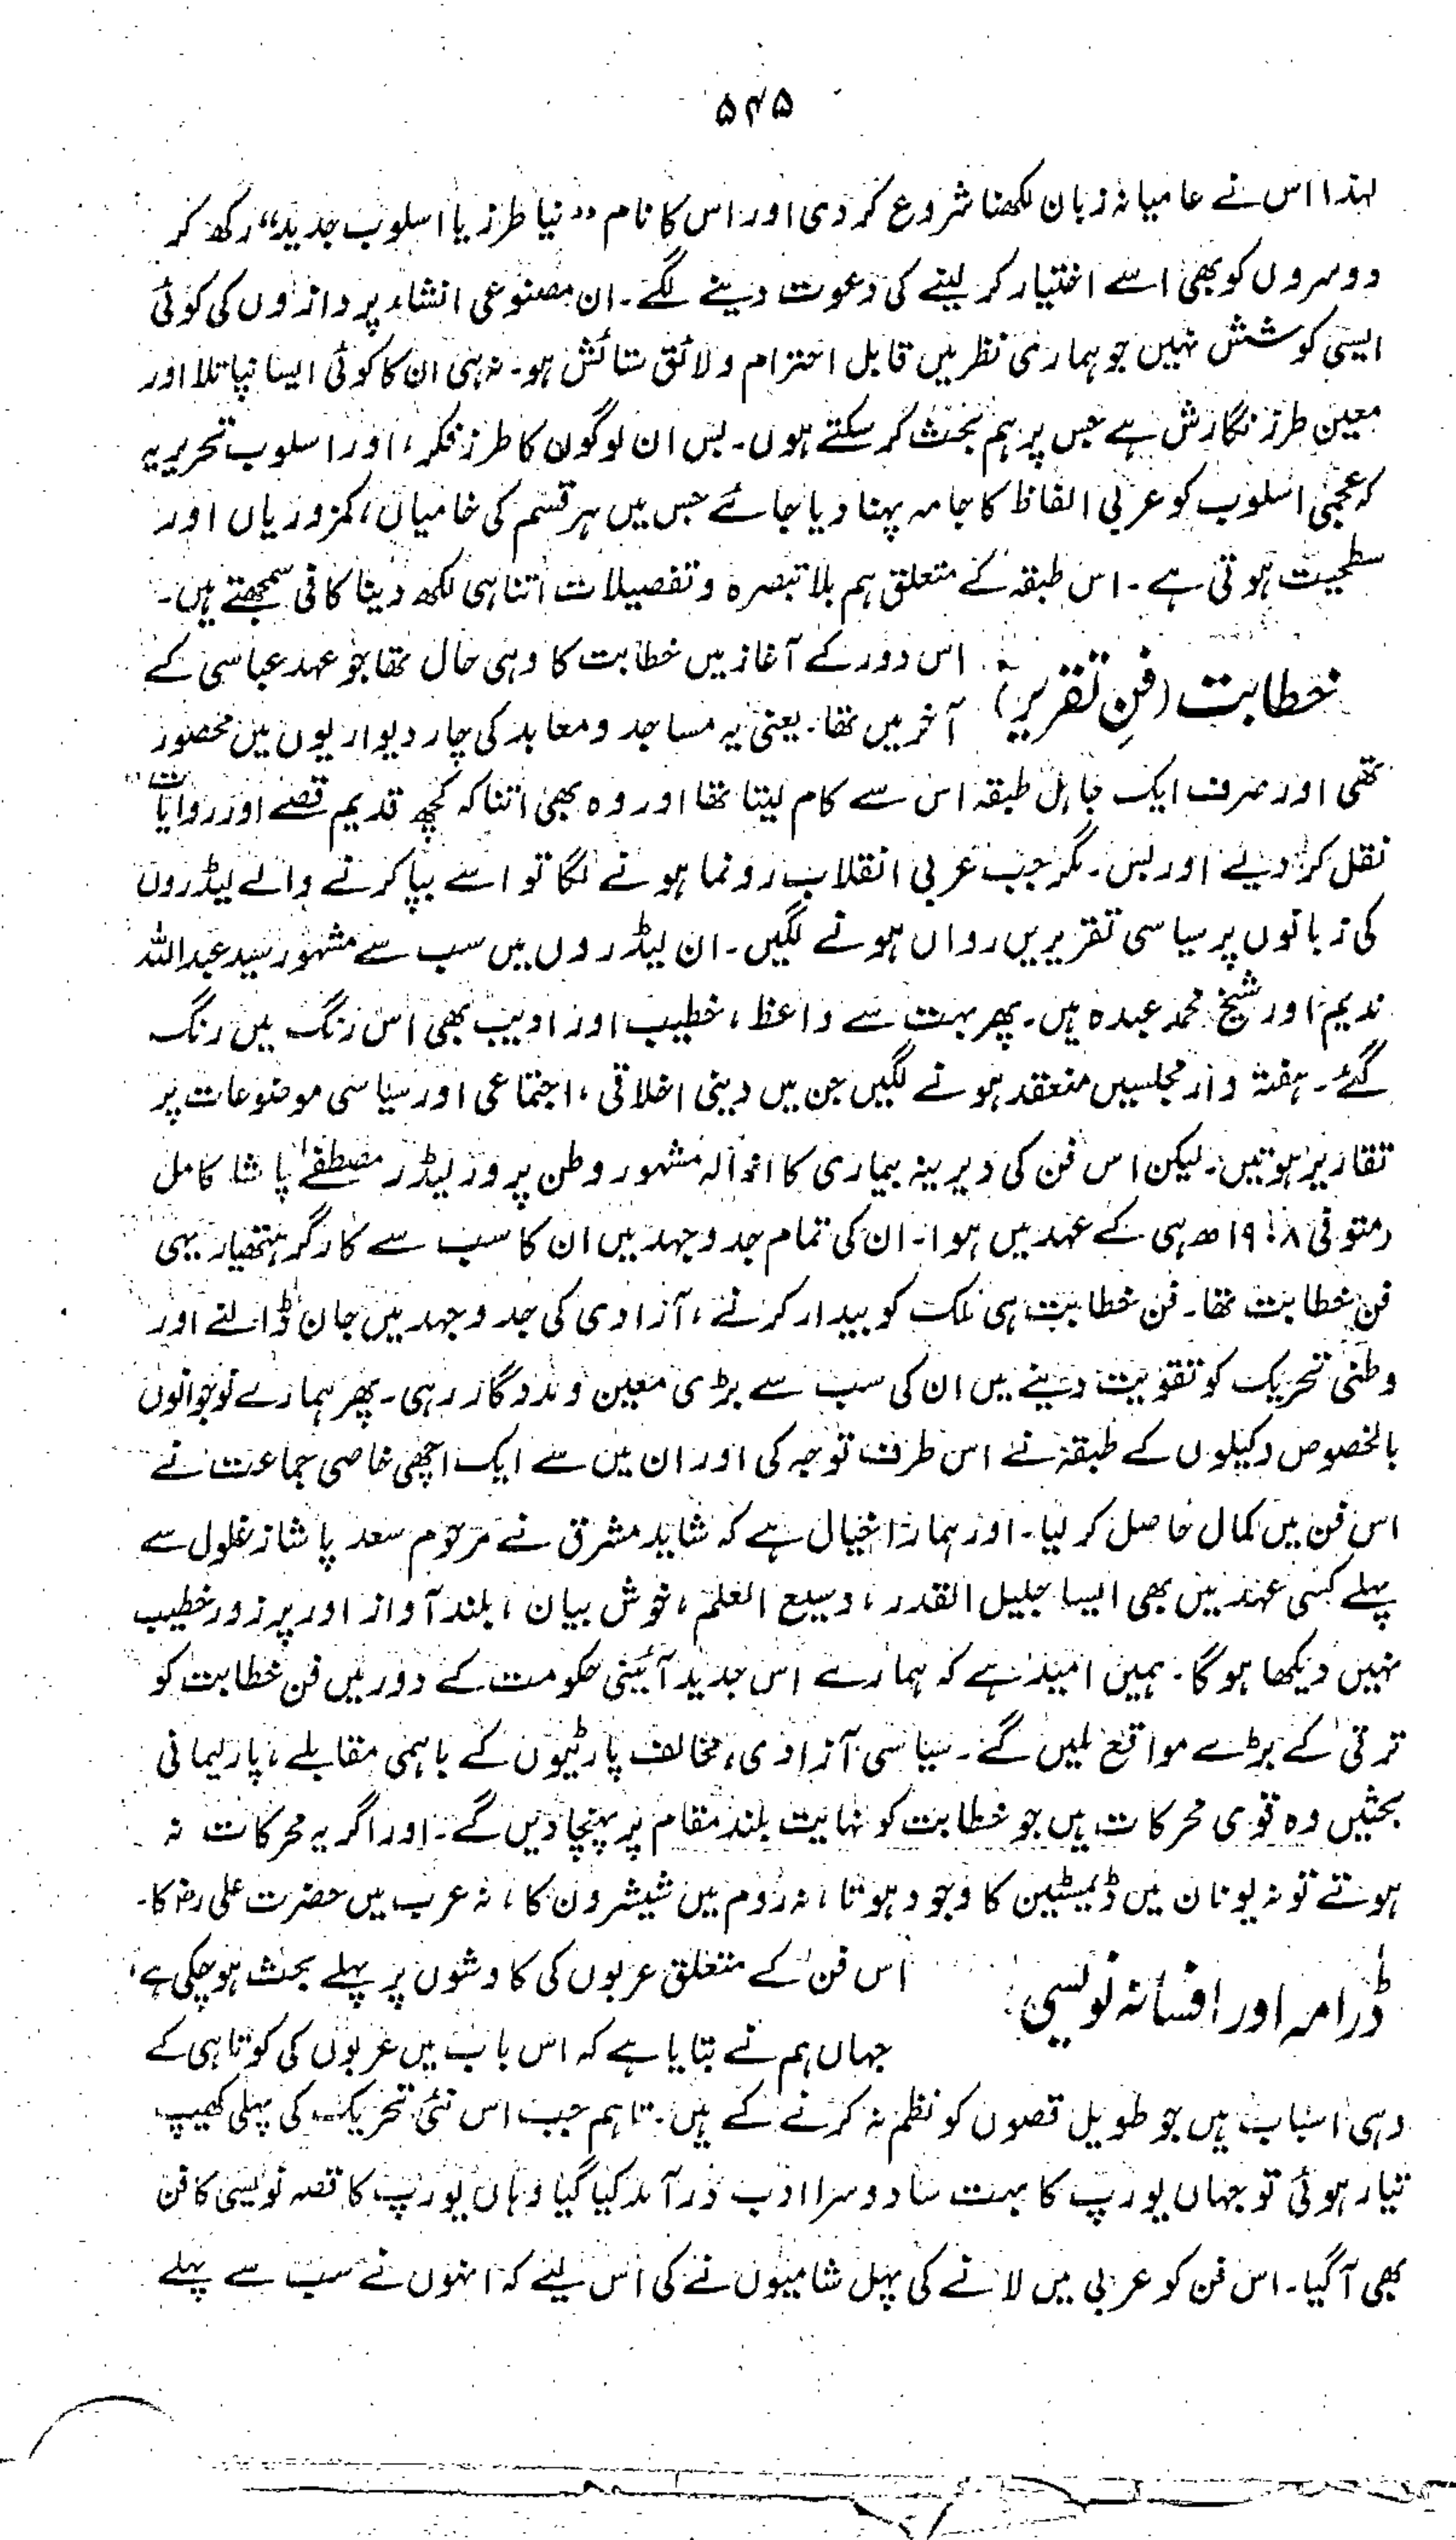 ۵۴۵
لہذا اس نے عامیانہ زبان لکھنا شروع کر دی اور اس کا نام “نیا طرز یا اسلوب جدید” رکھ کر
دوسروں کو بھی اسے اختیار کر لینے کی دعوت دینے لگے۔ ان مصنوعی انشاء پردازوں کی کوئی
ایسی کوشش نہیں جو ہماری نظر میں قابل احترام و لائق ستائش ہو۔ نہ ہی ان کا کوئی ایسا نپا تلا اور
معین طرز نگارش ہے جس پر ہم بحث کر سکتے ہوں۔ بس ان لوگوں کا طرز فکر، اور اسلوب تحریر یہ
کہ عجمی اسلوب کو عربی الفاظ کا جامہ پہنا دیا جائے جس میں ہر قسم کی خامیاں، کمزوریاں اور
سطحیت ہوتی ہے۔ اس طبقہ کے متعلق ہم بلا تبصرہ و تفصیلات اتنا ہی لکھ دینا کافی سمجھتے ہیں۔
خطابت (فنِ تقریر)
اس دور کے آغاز میں خطابت کا وہی حال تھا جو عہد عباسی کے
آخر میں تھا۔ یعنی یہ مساجد و معابد کی چار دیواریوں میں محصور
تھی اور صرف ایک جاہل طبقہ اس سے کام لیتا تھا اور وہ بھی اتنا کہ کچھ قدیم قصے اور روایات
نقل کر دیئے اور بس۔ مگر جب عربی انقلاب رونما ہونے لگا تو اسے بپا کرنے والے لیڈروں
کی زبانوں پر سیاسی تقریریں رواں ہونے لگیں۔ ان لیڈروں میں سب سے مشہور سید عبداللہ
ندیم اور شیخ محمد عبدہ ہیں۔ پھر بہت سے واعظ، خطیب اور ادیب بھی اس رنگ میں رنگ
گئے۔ ہفتہ وار مجلسیں منعقد ہونے لگیں جن میں دینی اخلاقی، اجتماعی اور سیاسی موضوعات پر
تقاریر ہوتیں۔ لیکن اس فن کی دیرینہ بیماری کا ازالہ مشہور وطن پرور لیڈر مصطفےٰ پاشا کامل
(متوفی ۱۹۰۸ھ ہی کے عہد میں ہوا۔ ان کی تمام جدوجہد میں ان کا سب سے کارگر ہتھیار یہی
فن خطابت تھا۔ فن خطابت ہی ملک کو بیدار کرنے، آزادی کی جدوجہد میں جان ڈالنے اور
وطنی تحریک کو تقویت دینے میں ان کی سب سے بڑی معین و مددگار رہی۔ پھر ہمارے نوجوانوں
بالخصوص وکیلوں کے طبقہ نے اس طرف توجہ کی اور ان میں سے ایک اچھی خاصی جماعت نے
اس فن میں کمال حاصل کر لیا۔ اور ہمارا خیال ہے کہ شاید مشرق نے مرحوم سعد پاشا زغلول سے
پہلے کسی عہد میں بھی ایسا جلیل القدر، وسیع العلم، خوش بیان، بلند آواز اور پر زور خطیب
نہیں دیکھا ہو گا۔ ہمیں امید ہے کہ ہمارے اس جدید آئینی حکومت کے دور میں فن خطابت کو
ترقی کے بڑے مواقع ملیں گے۔ سیاسی آزادی، مخالف پارٹیوں کے باہمی مقابلے، پارلیمانی
بحثیں وہ قوی محرکات ہیں جو خطابت کو نہایت بلند مقام پر پہنچا دیں گے۔ اور اگر یہ محرکات نہ
ہوتے تو نہ یونان میں ڈیمسٹین کا وجود ہوتا، نہ روم میں شیشرون کا، نہ عرب میں حضرت علی رض کا۔
ڈرامہ اور افسانہ نویسی:
اس فن کے متعلق عربوں کی کاوشوں پر پہلے بحث ہو چکی ہے،
جہاں ہم نے بتایا ہے کہ اس باب میں عربوں کی کوتاہی کے
وہی اسباب ہیں جو طویل قصوں کو نظم نہ کرنے کے ہیں۔ تاہم جب اس نئی تحریک کی پہلی کھیپ
تیار ہوئی تو جہاں یورپ کا بہت سا دوسرا ادب درآمد کیا گیا وہاں یورپ کا قصہ نویسی کا فن
بھی آ گیا۔ اس فن کو عربی میں لانے کی پہل شامیوں نے کی اس لیئے کہ انہوں نے سب سے پہلے